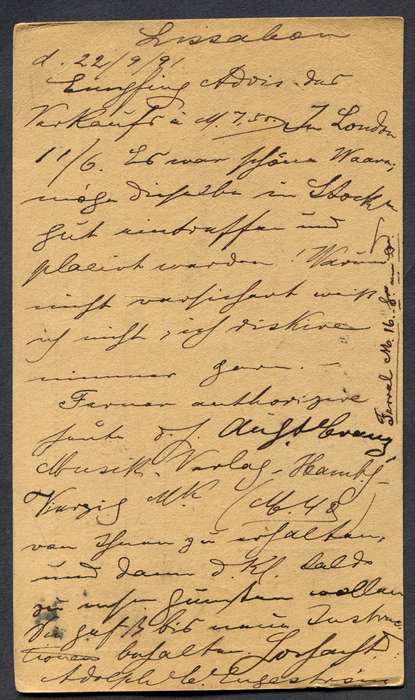 Lissabon
d. 22/9/91
Empfing Advis des
Verkaufs à M. 7,50 In London
11/6. Es war schöne Waare,
möge dieselbe in Stockh
gut eintreffen und
placirt werden! Warum
nicht versichert weiß
ich nicht, ich riskire
nimmer gern. –
Ferner authorizire
heute d. f. Aug. Cranz
Musik-Verlag-Hambg
Vierzig M.K (M. 48)
von Ihnen zu erhalten,
und dann d. Kl. Saldo
zu mein Gunsten wollen
Sie gefl. bis neue Instruc
tionen behalten.
Adolph W. Engeström